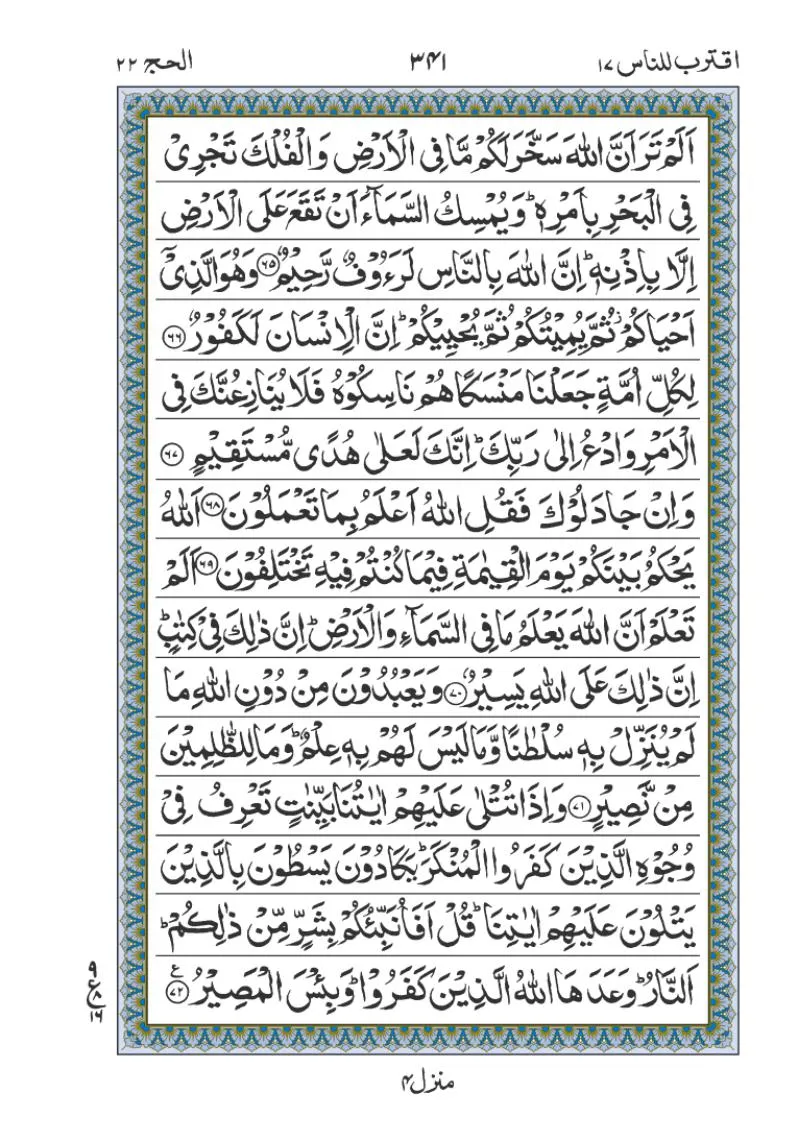 اقترب للناس ۱۷
۳۴۱
الحج ۲۲
اَلَمْ تَرَ اَنَّ اللّٰهَ سَخَّرَ لَكُمْ مَّا فِی الْاَرْضِ وَ الْفُلْكَ تَجْرِیْ
فِی الْبَحْرِ بِاَمْرِهٖ ؕ وَ یُمْسِكُ السَّمَآءَ اَنْ تَقَعَ عَلَی الْاَرْضِ
اِلَّا بِاِذْنِهٖ ؕ اِنَّ اللّٰهَ بِالنَّاسِ لَرَءُوْفٌ رَّحِیْمٌ ﴿۶۵﴾ وَ هُوَ الَّذِیْۤ
اَحْیَاكُمْ ؗ ثُمَّ یُمِیْتُكُمْ ثُمَّ یُحْیِیْكُمْ ؕ اِنَّ الْاِنْسَانَ لَكَفُوْرٌ ﴿۶۶﴾
لِكُلِّ اُمَّةٍ جَعَلْنَا مَنْسَكًا هُمْ نَاسِكُوْهُ فَلَا یُنَازِعُنَّكَ فِی
الْاَمْرِ وَ ادْعُ اِلٰی رَبِّكَ ؕ اِنَّكَ لَعَلٰی هُدًی مُّسْتَقِیْمٍ ﴿۶۷﴾
وَ اِنْ جَادَلُوْكَ فَقُلِ اللّٰهُ اَعْلَمُ بِمَا تَعْمَلُوْنَ ﴿۶۸﴾ اَللّٰهُ
یَحْكُمُ بَیْنَكُمْ یَوْمَ الْقِیٰمَةِ فِیْمَا كُنْتُمْ فِیْهِ تَخْتَلِفُوْنَ ﴿۶۹﴾ اَلَمْ
تَعْلَمْ اَنَّ اللّٰهَ یَعْلَمُ مَا فِی السَّمَآءِ وَ الْاَرْضِ ؕ اِنَّ ذٰلِكَ فِیْ كِتٰبٍ ؕ
اِنَّ ذٰلِكَ عَلَی اللّٰهِ یَسِیْرٌ ﴿۷۰﴾ وَ یَعْبُدُوْنَ مِنْ دُوْنِ اللّٰهِ مَا
لَمْ یُنَزِّلْ بِهٖ سُلْطٰنًا وَّ مَا لَیْسَ لَهُمْ بِهٖ عِلْمٌ ؕ وَ مَا لِلظّٰلِمِیْنَ
مِنْ نَّصِیْرٍ ﴿۷۱﴾ وَ اِذَا تُتْلٰی عَلَیْهِمْ اٰیٰتُنَا بَیِّنٰتٍ تَعْرِفُ فِیْ
وُجُوْهِ الَّذِیْنَ كَفَرُوا الْمُنْكَرَ ؕ یَكَادُوْنَ یَسْطُوْنَ بِالَّذِیْنَ
یَتْلُوْنَ عَلَیْهِمْ اٰیٰتِنَا ؕ قُلْ اَفَاُنَبِّئُكُمْ بِشَرٍّ مِّنْ ذٰلِكُمْ ؕ
اَلنَّارُ ؕ وَعَدَهَا اللّٰهُ الَّذِیْنَ كَفَرُوْا ؕ وَ بِئْسَ الْمَصِیْرُ ﴿۷۲﴾ ع
۹
ع ۸
۱۶
منزل ۴